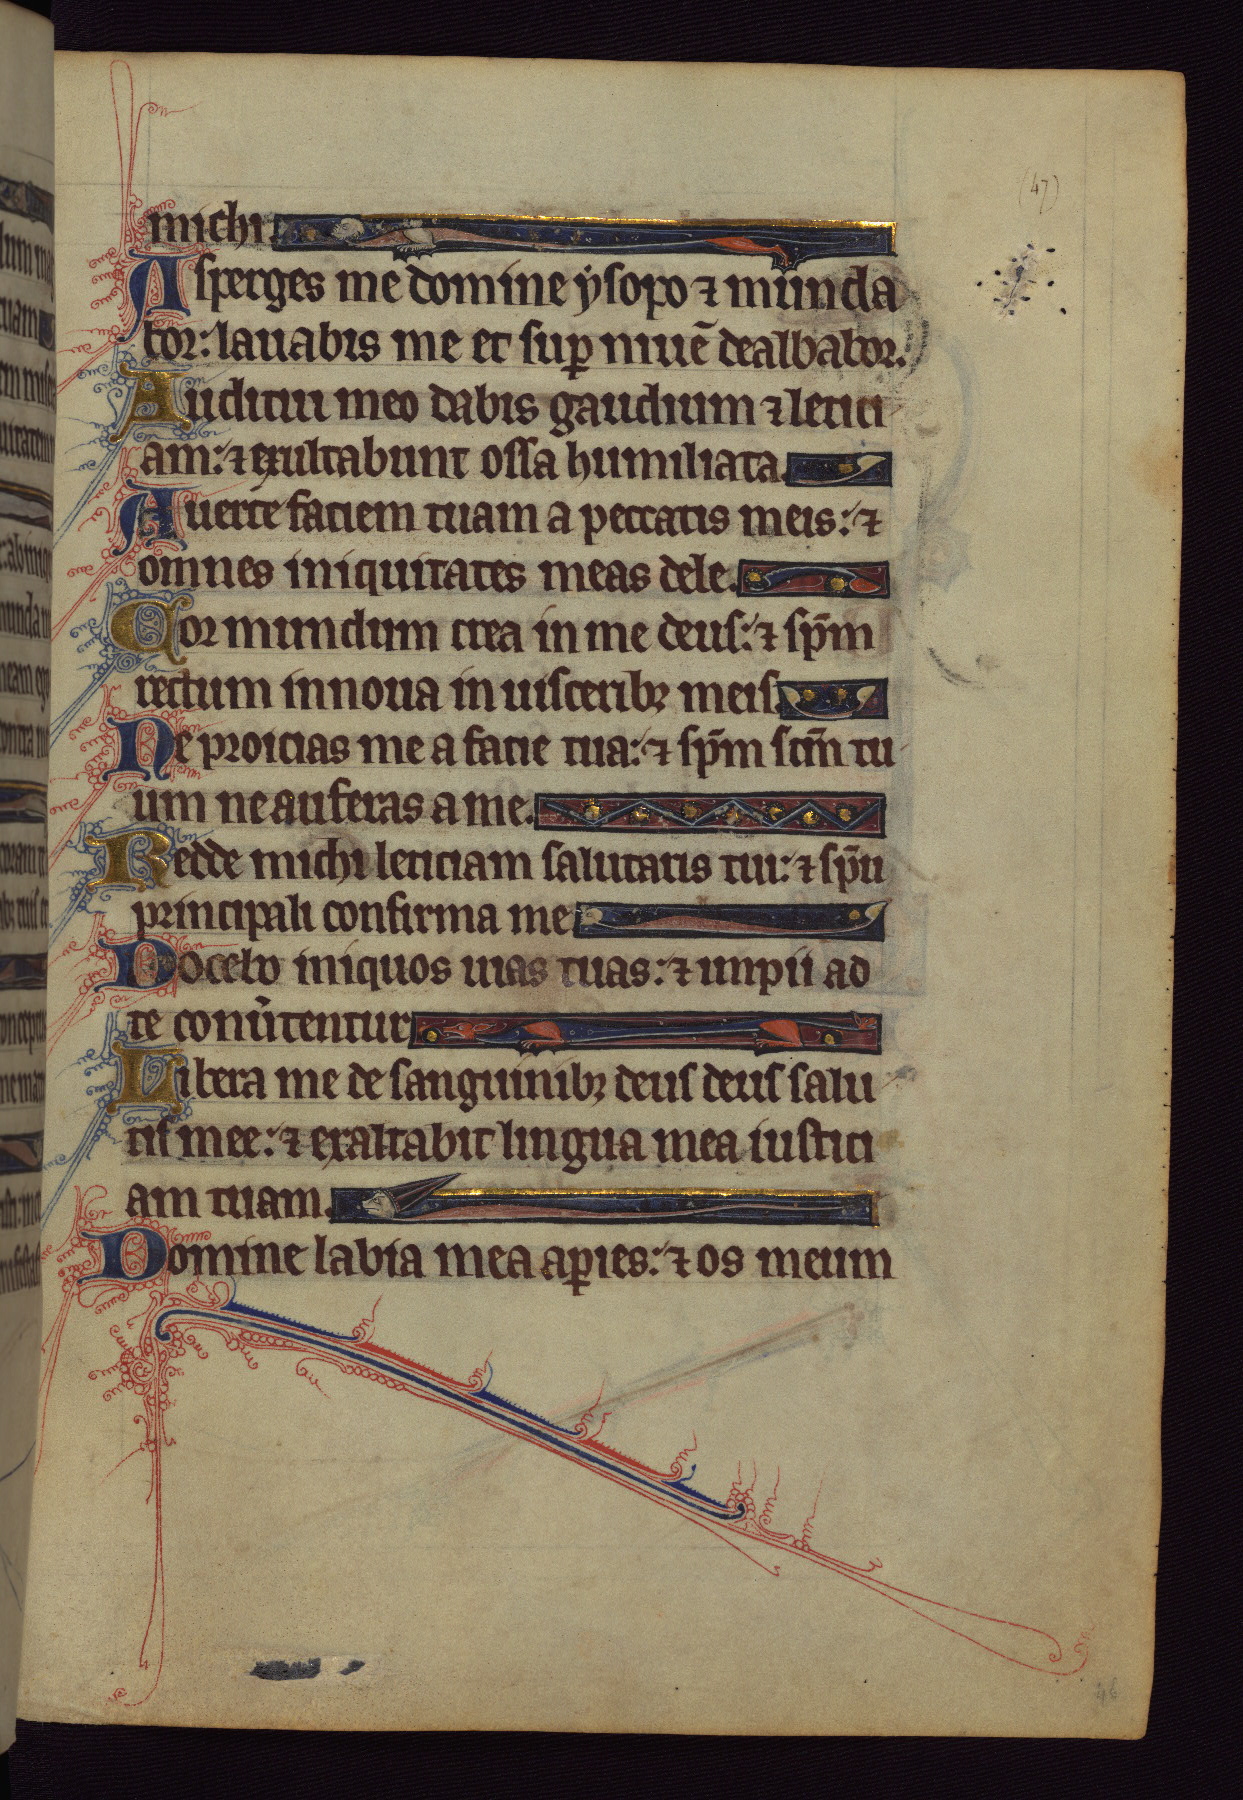 (47)
michi.
Asperges me domine ysopo ⁊ munda
bor: lauabis me et suꝑ niuē dealbabor.
Auditui meo dabis gaudium ⁊ letici
am: ⁊ exultabunt ossa humiliata.
Auerte faciem tuam a peccatis meis: ⁊
omnes iniquitates meas dele.
Cor mundum crea in me deus: ⁊ sp̄m
rectum innoua in uisceribꝫ meis.
Ne proicias me a facie tua: ⁊ sp̄m sc̄m tu
um ne auferas a me.
Redde michi leticiam salutaris tui: ⁊ sp̄u
principali confirma me.
Docebo iniquos uias tuas: ⁊ impii ad
te conu͛tentur.
Libera me de sanguinibꝫ deus deus salu
tis mee: ⁊ exaltabit lingua mea iustici
am tuam.
Domine labia mea aꝑies: ⁊ os meum
46